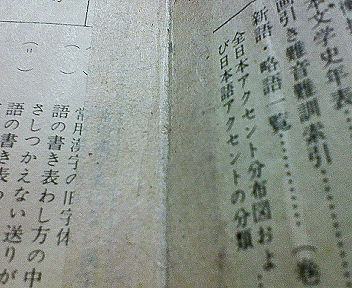 本文学史年表……
画引き難音難訓索引……(巻
新語・略語一覧……
全日本アクセント分布図およ
び日本語アクセントの分類
( )　常用漢字の旧字体
( =　語の書き表わし方の中
さしつかえない送りが
語の書き表わ